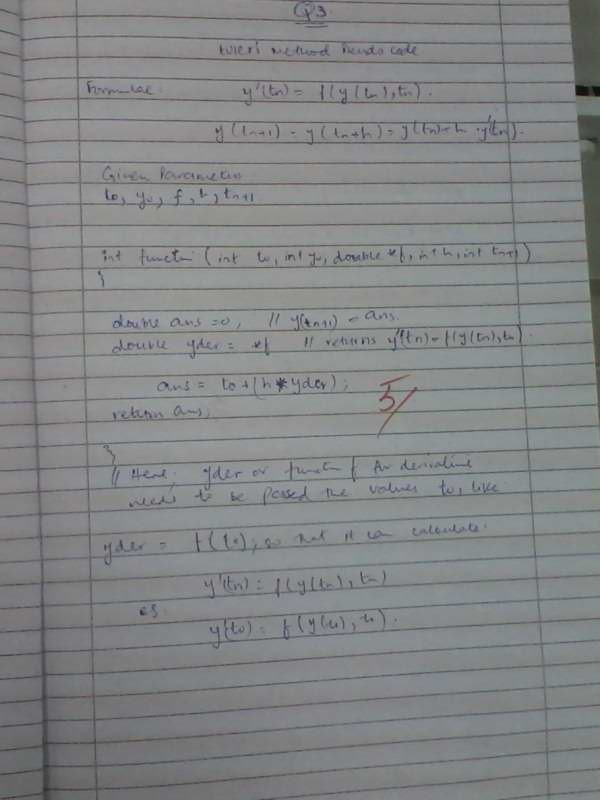 Q3
Euler's method Pseudo code
Formulae: y'(tn) = f(y(tn), tn).
y(tn+1) = y(tn+h) = y(tn)+h·y'(tn).
Given Parameters
to, yo, f, h, tn+1
int function (int to, int yo, double *f, int h, int tn+1)
{
double ans = 0, // y(tn+1) = ans.
double yder = *f // returns y'(tn) = f(y(tn), tn).
ans = to + (h * yder);
5/
return ans;
}
// Here, yder or function f for derivative
needs to be passed the values to, like
yder = f(to), so that it can calculate.
y'(tn) = f(y(tn), tn)
eg.
y'(to) = f(y(to), to).